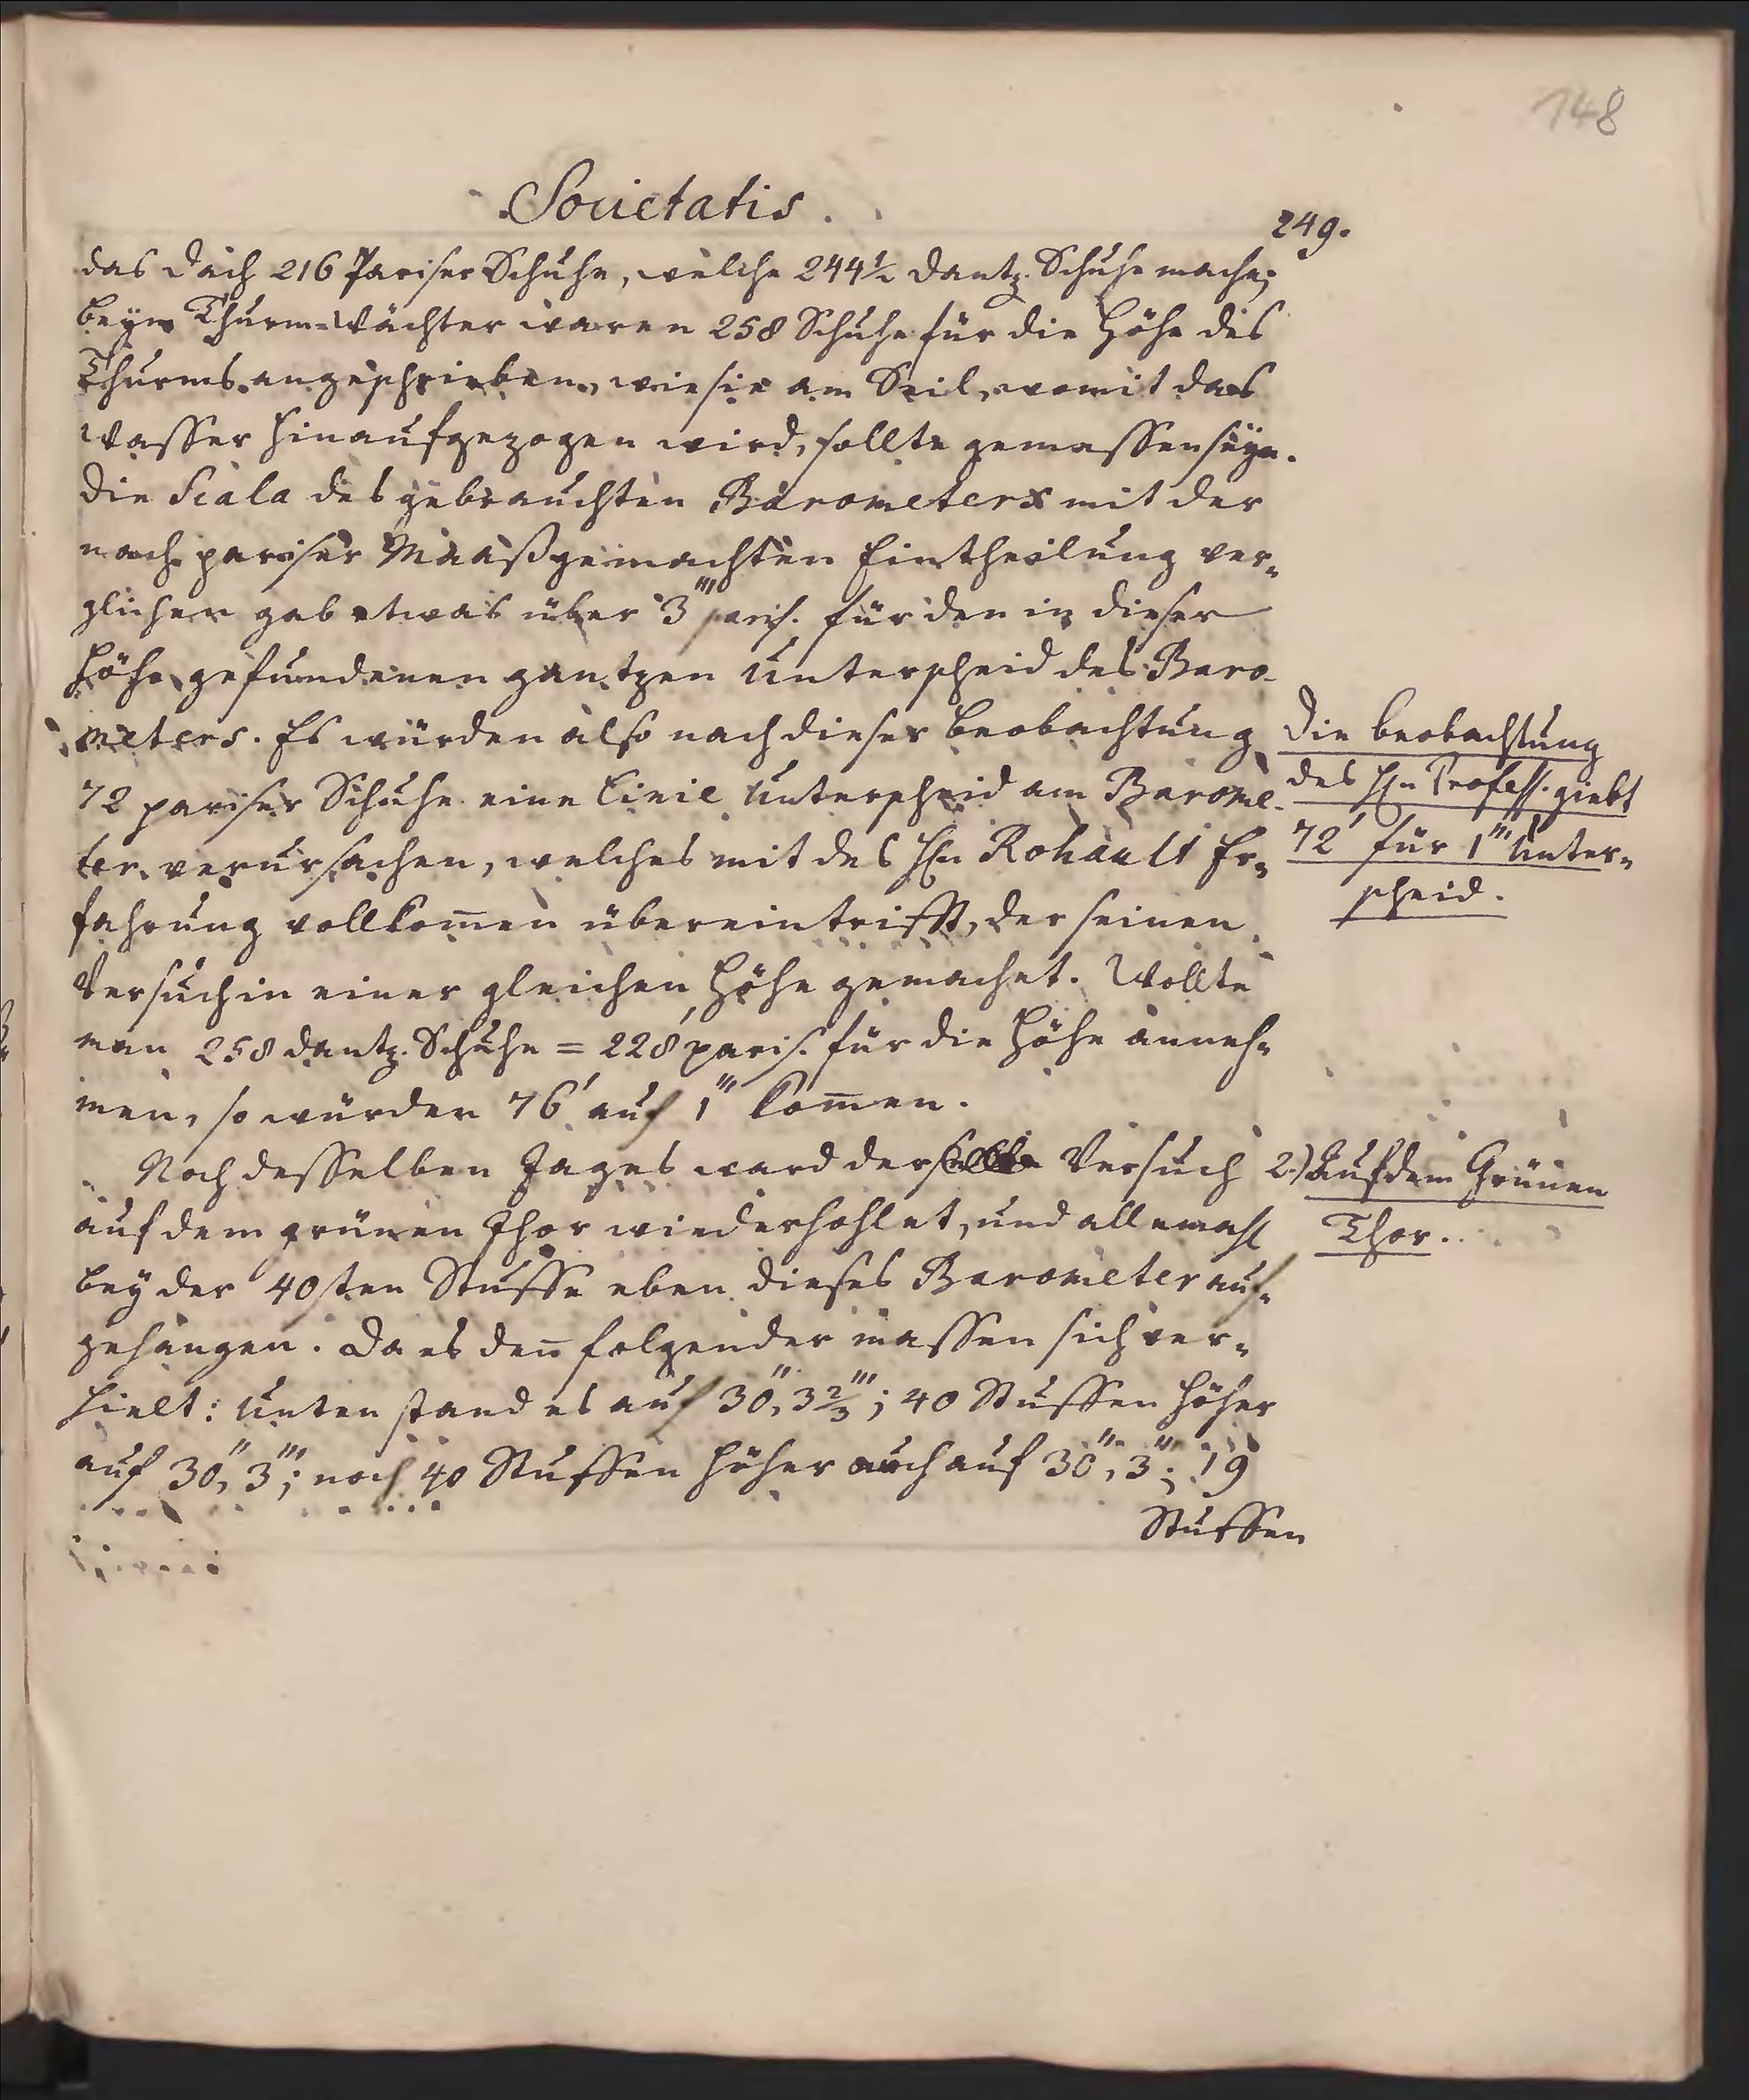 148
Societatis.
249.
das Dach 216 Pariser Schuhe, welche 244½ dantz. Schuhe mache;
beym Thurm-Wächter waren 258 Schuhe für die Höhe des
Thurms angeschrieben, wie sie am Seil, womit das
Wasser hinaufgezogen wird, sollte gemessen seyn.
Die Scala des gebrauchten Barometers mit der
nach pariser Maaß gemachten Eintheilung ver-
glichen gab etwas über 3''' paris. für den in dieser
Höhe gefundenen gantzen Unterscheid des Baro-
meters. Es würden also nach dieser Beobachtung
72 pariser Schuhe eine Linie Unterscheid am Barome-
ter verursachen, welches mit des Hn Rohault Er-
fahrung vollkom̅en übereintrifft, der seinen
Versuch in einer gleichen Höhe gemachet. Wollte
man 258 dantz. Schuhe = 228' paris. für die Höhe anneh-
men, so würden 76' auf 1''' kom̅en.
Noch desselben Tages ward derselbe Versuch
auf dem grünen Thor wiederhohlet, und allemahl
bey der 40sten Stuffe eben dieses Barometer auf-
gehangen. Da es den̅ folgender massen sich ver-
hielt: Unten stand es auf 30'', 3⅔'''; 40 Stuffen höher
auf 30'', 3'''; noch 40 Stuffen höher auch auf 30'', 3'''; 19
Stuffen
Die Beobachtung
des Hn Profess. giebt
72' für 1''' Unter-
scheid.
2.) Auf dem Grünen
Thor.